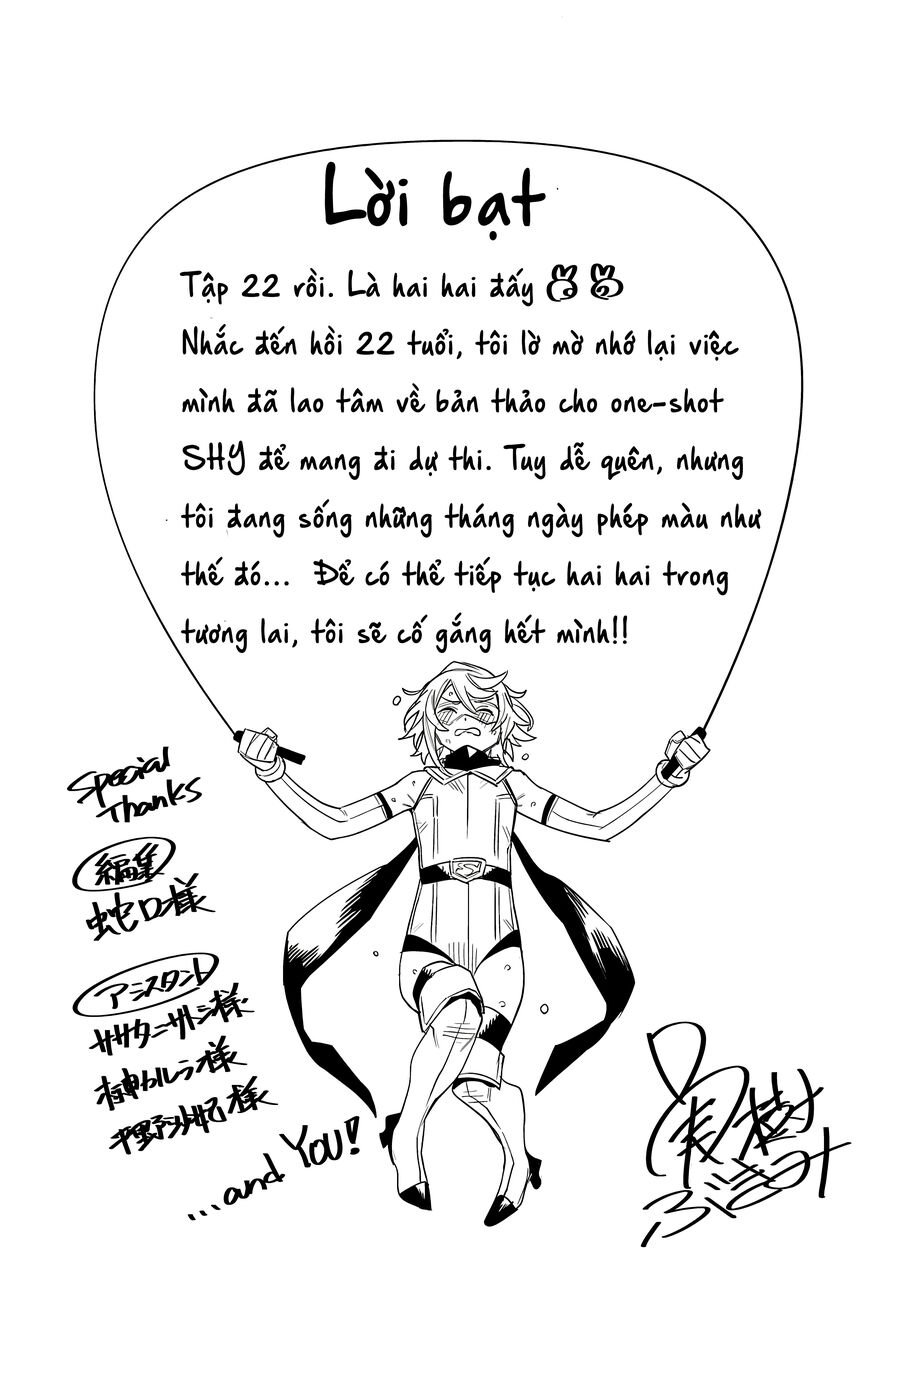 Lời bạt
Tập 22 rồi. Là hai hai đấy
Nhắc đến hồi 22 tuổi, tôi lờ mờ nhớ lại việc
mình đã lao tâm về bản thảo cho one-shot
SHY để mang đi dự thi. Tuy dễ quên, nhưng
tôi đang sống những tháng ngày phép màu như
thế đó... Để có thể tiếp tục hai hai trong
tương lai, tôi sẽ cố gắng hết mình!!
S
Special
Thanks
編集
蛇口様
アシスタント
ササタニサトシ様
神カルラ様
平野沙妃様
...and YOU!
実樹
ぶきみ